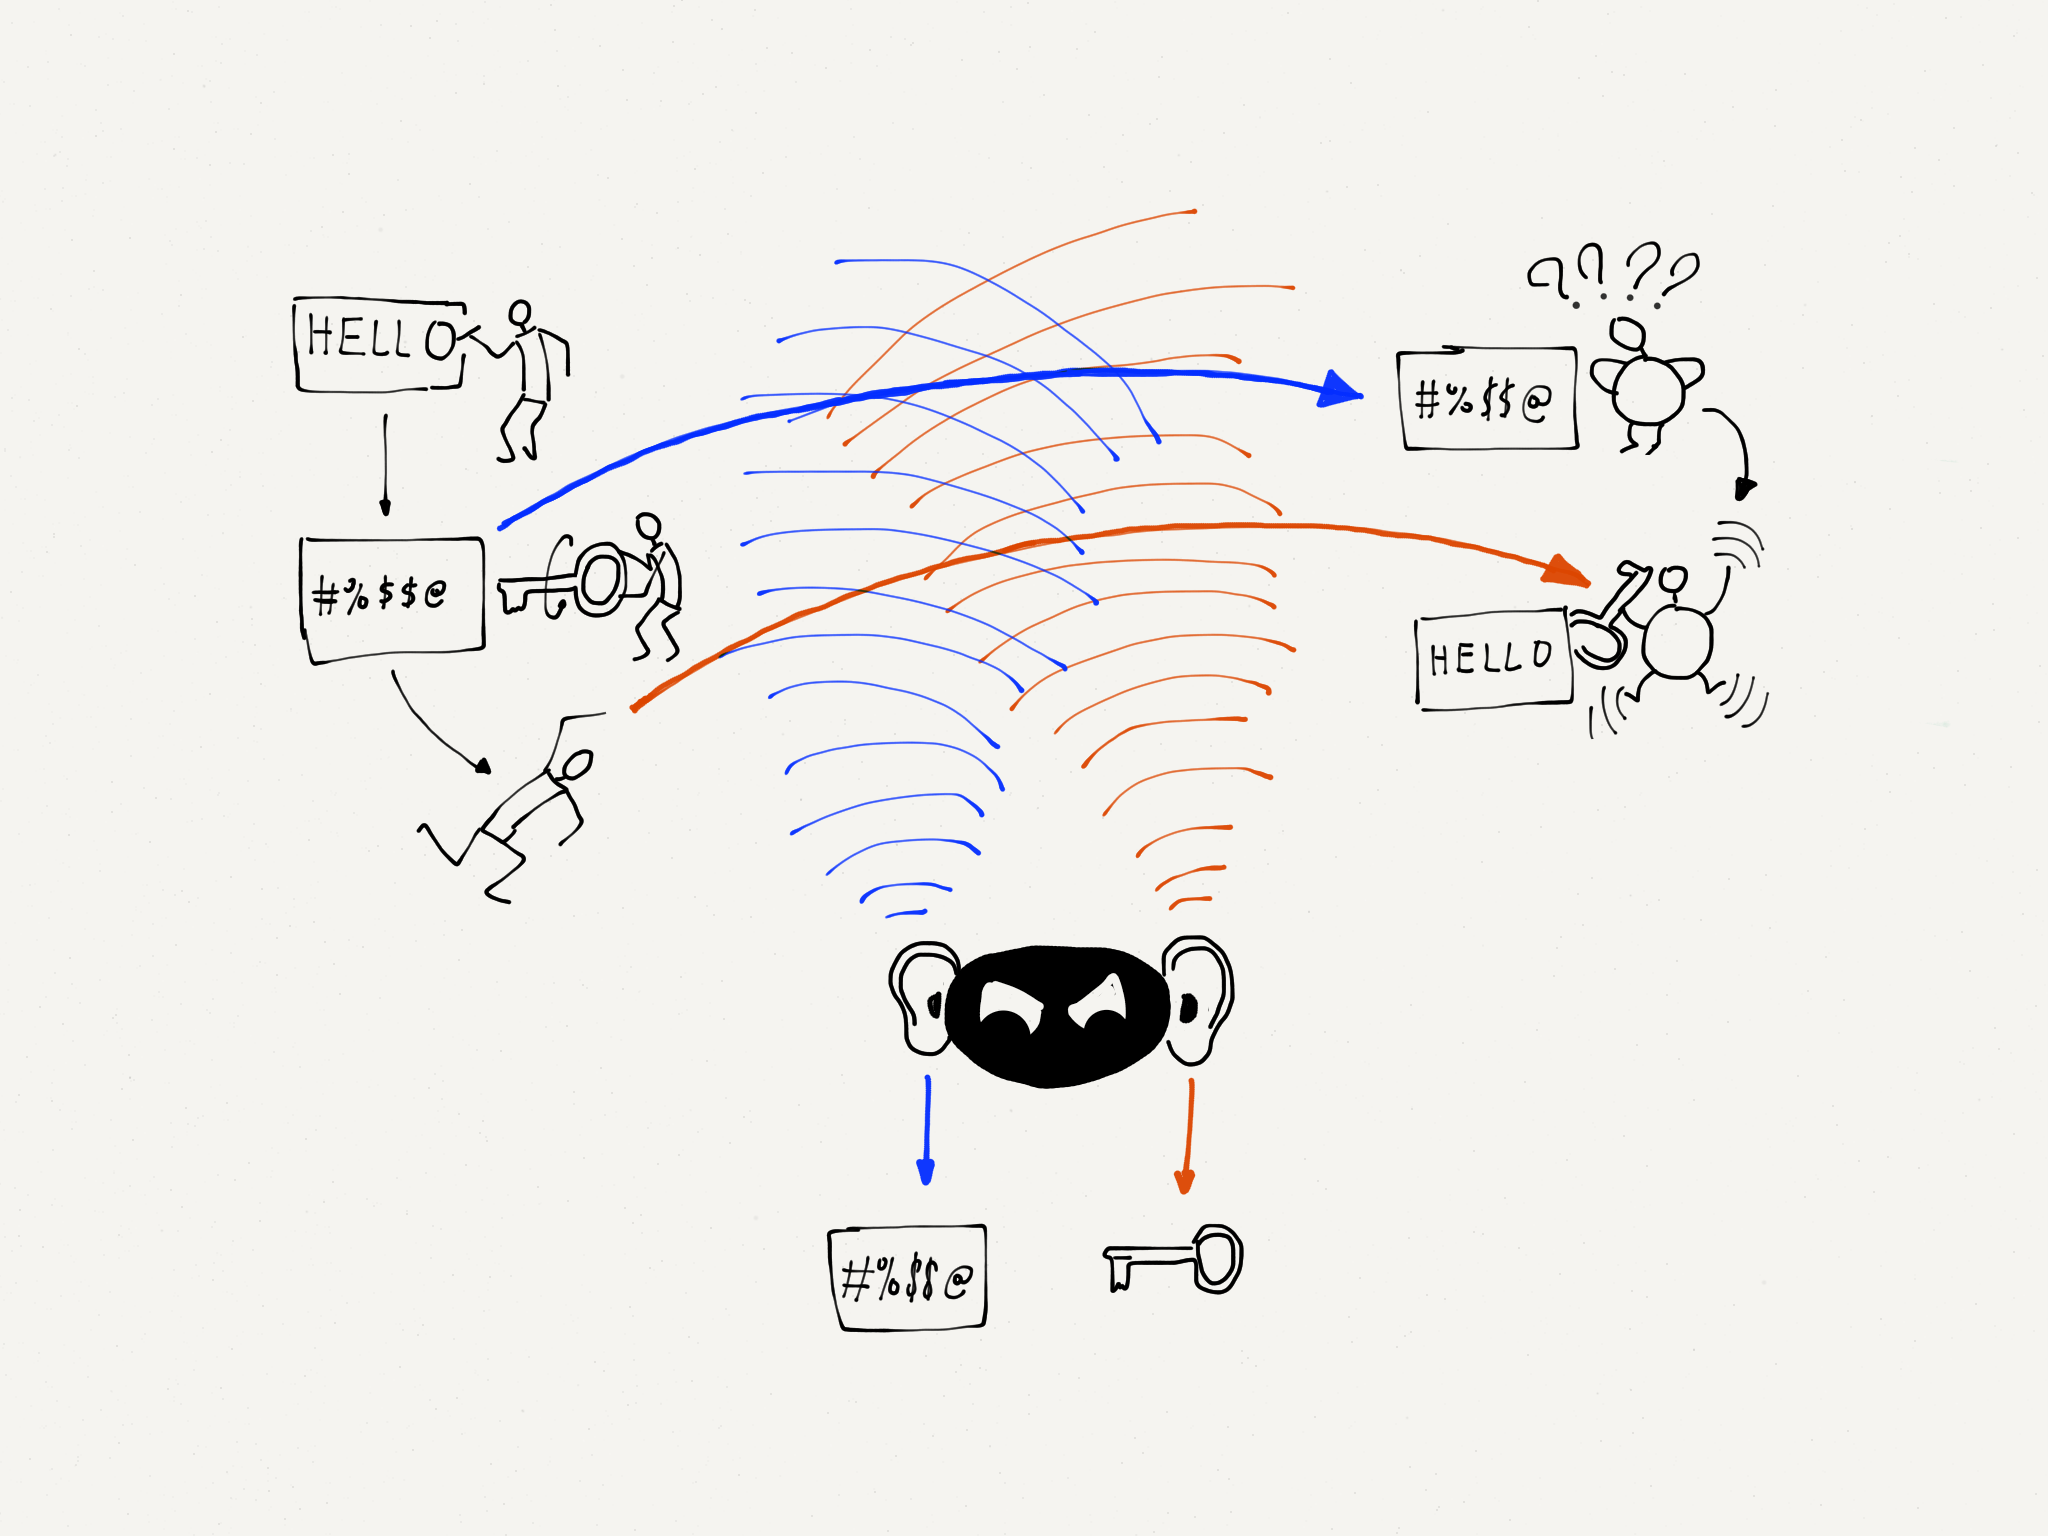 HELLO
#%$$@
????
#%$$@
HELLO
#%$$@